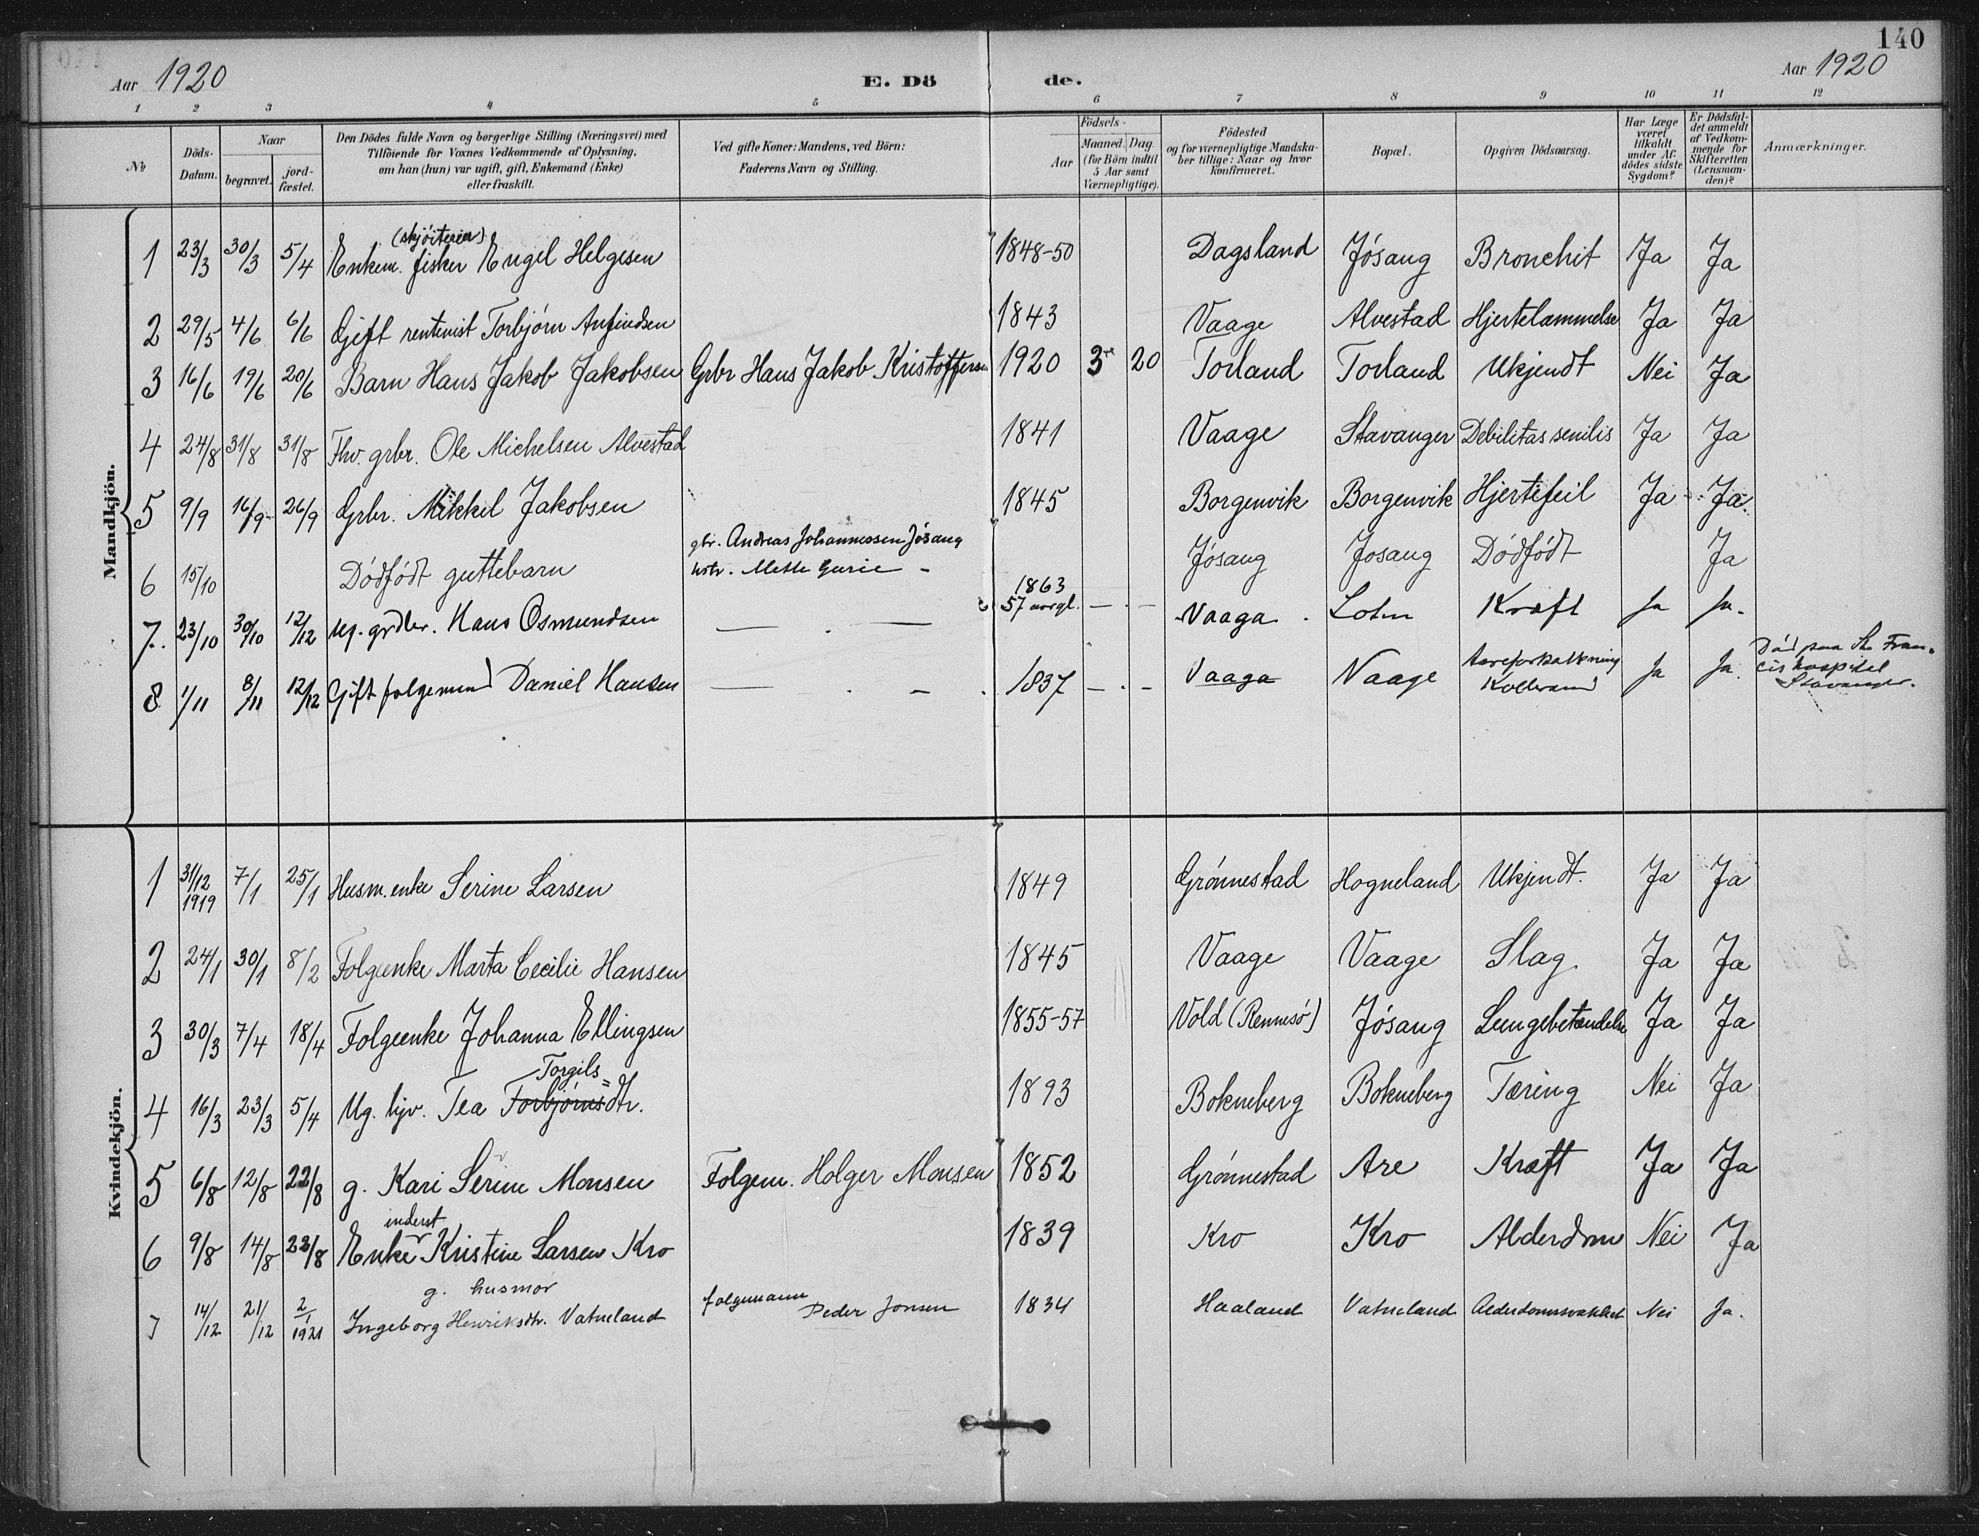 140
Aar 1920 E. Dö de. Aar 1920
1 2 3 4 5 6 7 8 9 10 11 12
№ Döds-Datum. Naar begravet. jord-fæstet. Den Dödes fulde Navn og borgerlige Stilling (Næringsvei) med Tilföiende for Voxnes Vedkommende af Oplysning, om han (hun) var ugift, gift, Enkemand (Enke) eller fraskilt. Ved gifte Koner: Mandens, ved Börn: Faderens Navn og Stilling. Födsels- Aar Maaned. Dag (for Börn indtil 5 Aar samt Værnepligtige). Födested og for værnepligtige Mandskaber tillige: Naar og hvor konfirmeret. Bopæl. Opgiven Dödsaarsag. Har Læge været tilkaldt under Afdödes sidste Sygdom? Er Dödsfaldet anmeldt af Vedkommende for Skifteretten (Lensmanden)? Anmærkninger.
Mandkjön.
(skjöiteeier)
1 23/3 30/3 5/4 Enkem. fisker Engil Helgesen 1848-50 Dagsland Jósang Bronchit Ja Ja
2 29/5 4/6 6/6 Gift rentenist Torbjörn Anfindsen 1843 Vaage Alvestad Hjertelammelse Ja Ja
3 16/6 19/6 20/6 Barn Hans Jakob Jakobsen Grbr Hans Jakob Kristoffersen 1920 3 20 Torland Torland Ukjendt Nei Ja
4 24/8 31/8 31/8 Fhv. grbr. Ole Michelsen Alvestad 1841 Vaage Stavanger Debilitas senilis Ja Ja
5 9/9 16/9 26/9 Grbr. Mikkel Jakobsen 1845 Borgenvik Borgenvik Hjertefeil Ja Ja.
6 15/10 Dódfódt guttebarn gbr. Andreas Johannessen Jósang
hstr. Mette Gurie - Jósang Josang Dódfódt Ja
7. 23/10 30/10 12/12 Ug. grdbr. Hans Osmundsen — . — 1863
57 aargl. — . — Vaaga. Kræft Ja Ja.
8 1/11 8/11 12/12 Gift folgemand Daniel Hansen — . — . 1837 — . — Vaaga Vaage Aareforkalkning
Koldbrand Ja Ja. Död paa St. Fran-
cishospital
Stavanger.
Kvindekjön.
1 31/12 1919 7/1 25/1 Husm. enke Serine Larsen 1849 Grónnestad Hogneland Ukjendt. Ja Ja
2 24/1 30/1 8/2 Folgeenke Marta Cecilie Hansen 1845 Vaage Vaage Slag. Ja Ja
3 30/3 7/4 18/4 Folgeenke Johanna Ellingsen 1855-57 Vold (Rennesó) Jósang Lungebetændelse Ja Ja
Torgils=
4 16/3 23/3 5/4 Ug. hjv. Tea Torbjörnsdtr. 1893 Bokneberg Bokneberg Tæring Nei Ja
5 6/8 12/8 22/8 g. Kari Serine Monsen Folgem. Holger Monsen 1852 Grónnestad Are Kræft Ja Ja
inderst
6 9/8 14/8 22/8 Enke Kristine Larsen Kro 1839 Kro Kro Alderdom Nei Ja
g. husmor
7 14/12 21/12 2/1 1921 Ingeborg Henriksdtr. Vatneland folgemann Peder Jonsen 1834 Haaland Vatneland Alderdomssvakhet Nei Ja.